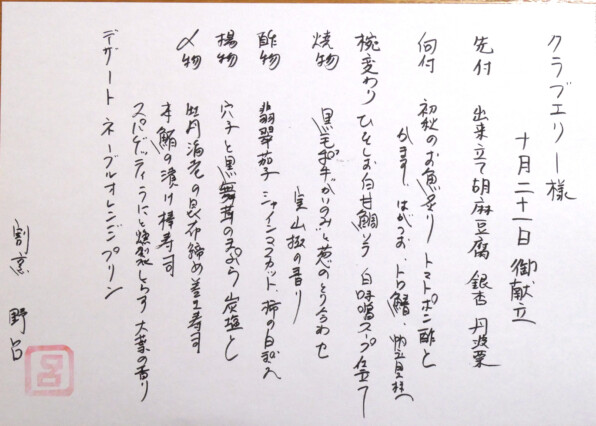 クラブエリー様
十月二十一日 御献立
先付 出来立て胡麻豆腐 銀杏 丹波栗
向付 初秋のお魚炙り トマトポン酢と
かます、はがつお、トロ鰆、帆立貝柱へ
椀変わり ひそひお 白甘鯛 白味噌スープ仕立て
焼物 黒毛和牛かいのみと葱のとう合わせ
実山椒の香り
酢物 翡翠茄子 シャインマスカット、柿の白和え
揚物 穴子と黒舞茸の天ぷら 炭塩と
〆物 牡丹海老の昆布締め 差上寿司
本鮪の漬け棒寿司
スパゲッティうにと燻製しらす 大葉の香り
デザート ネーブルオレンジプリン
割烹 野呂
呂